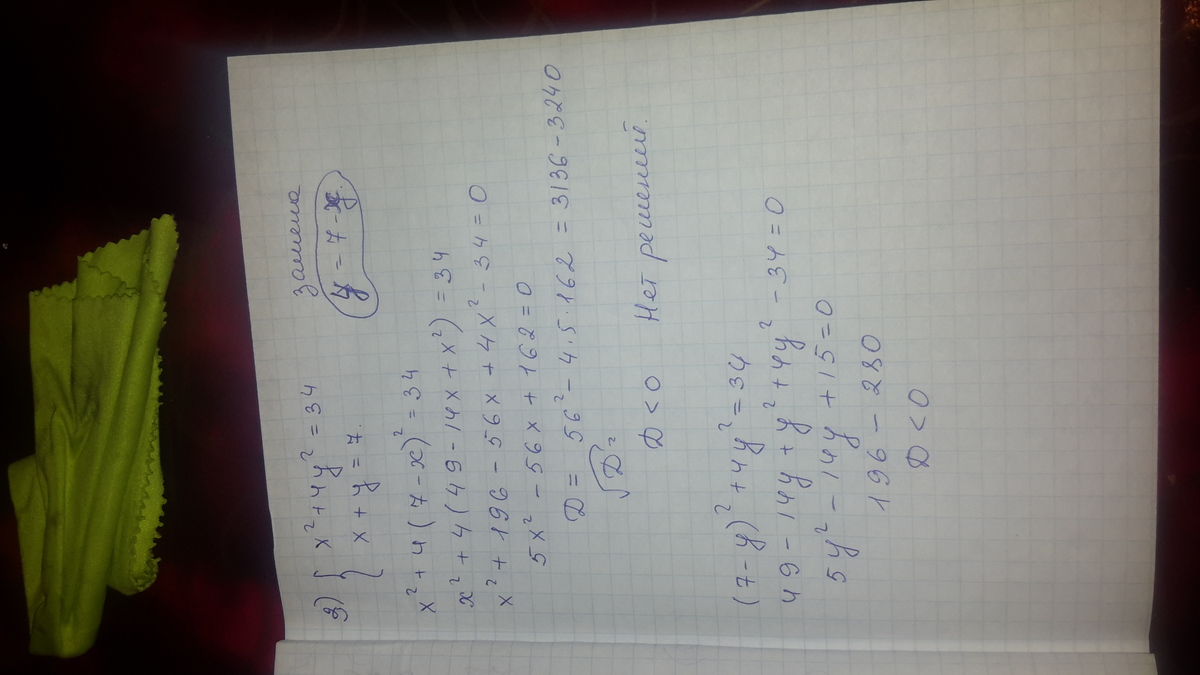 замена
3) { x² + 4y² = 34
x + y = 7.
y = 7 - x.
x² + 4(7 - x)² = 34
x² + 4(49 - 14x + x²) = 34
x² + 196 - 56x + 4x² - 34 = 0
5x² - 56x + 162 = 0
D = 56² - 4·5·162 = 3136 - 3240
√D =
D < 0 Нет решений.
(7 - y)² + 4y² = 34
49 - 14y + y² + 4y² - 34 = 0
5y² - 14y + 15 = 0
196 - 280
D < 0